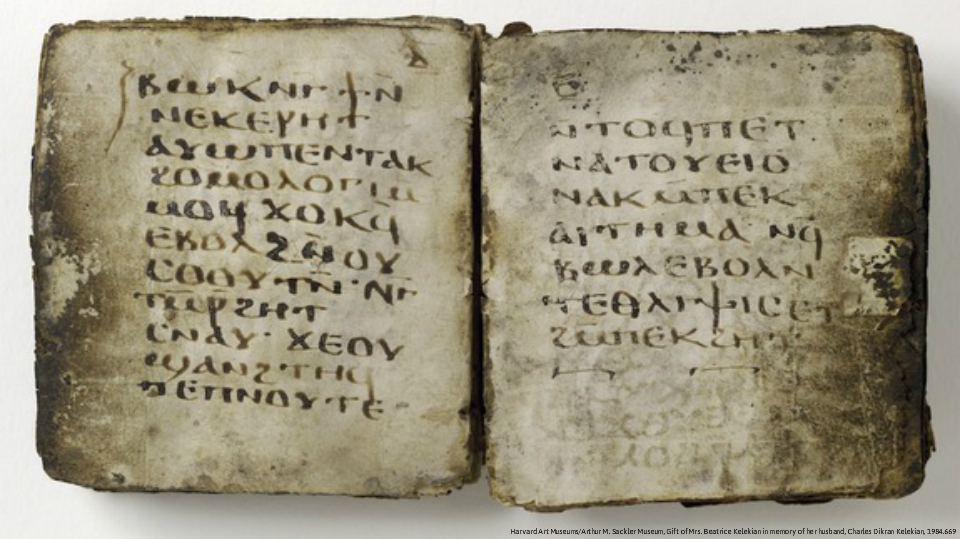 ⲃⲱⲕⲛⲅϯⲛ̄
ⲛⲉⲕⲉⲣⲏⲧ
ⲁⲩⲱⲡⲉⲛⲧⲁⲕ
ϩⲟⲙⲟⲗⲟⲅⲓⲙ̄
ⲙⲟϥ ϫⲟⲕϥ̄
ⲉⲃⲟⲗϩⲛ̄ⲟⲩ
ⲥⲟⲟⲩⲧⲛ̄·ⲛⲅ
ⲧⲙ̄ⲣ̄ϩⲏⲧ
ⲥⲛⲁⲩ· ϫⲉⲟⲩ
ϣⲁⲛϩⲧⲏϥ
ⲡⲉⲡⲛⲟⲩⲧⲉ·
ⲛ̄ⲧⲟϥⲡⲉⲧ
ⲛⲁⲧⲟⲩⲉⲓⲟ
ⲛⲁⲕⲙ̄ⲡⲉⲕ
ⲁⲓⲧⲏⲙⲁ· ⲛϥ̄
ⲃⲱⲗⲉⲃⲟⲗⲛ
ⲧⲉⲑⲗⲓⲯⲓⲥⲉⲧ
ϩⲙ̄ⲡⲉⲕϩⲏⲧ·
Harvard Art Museums/Arthur M. Sackler Museum, Gift of Mrs. Beatrice Kelekian in memory of her husband, Charles Dikran Kelekian, 1984.669